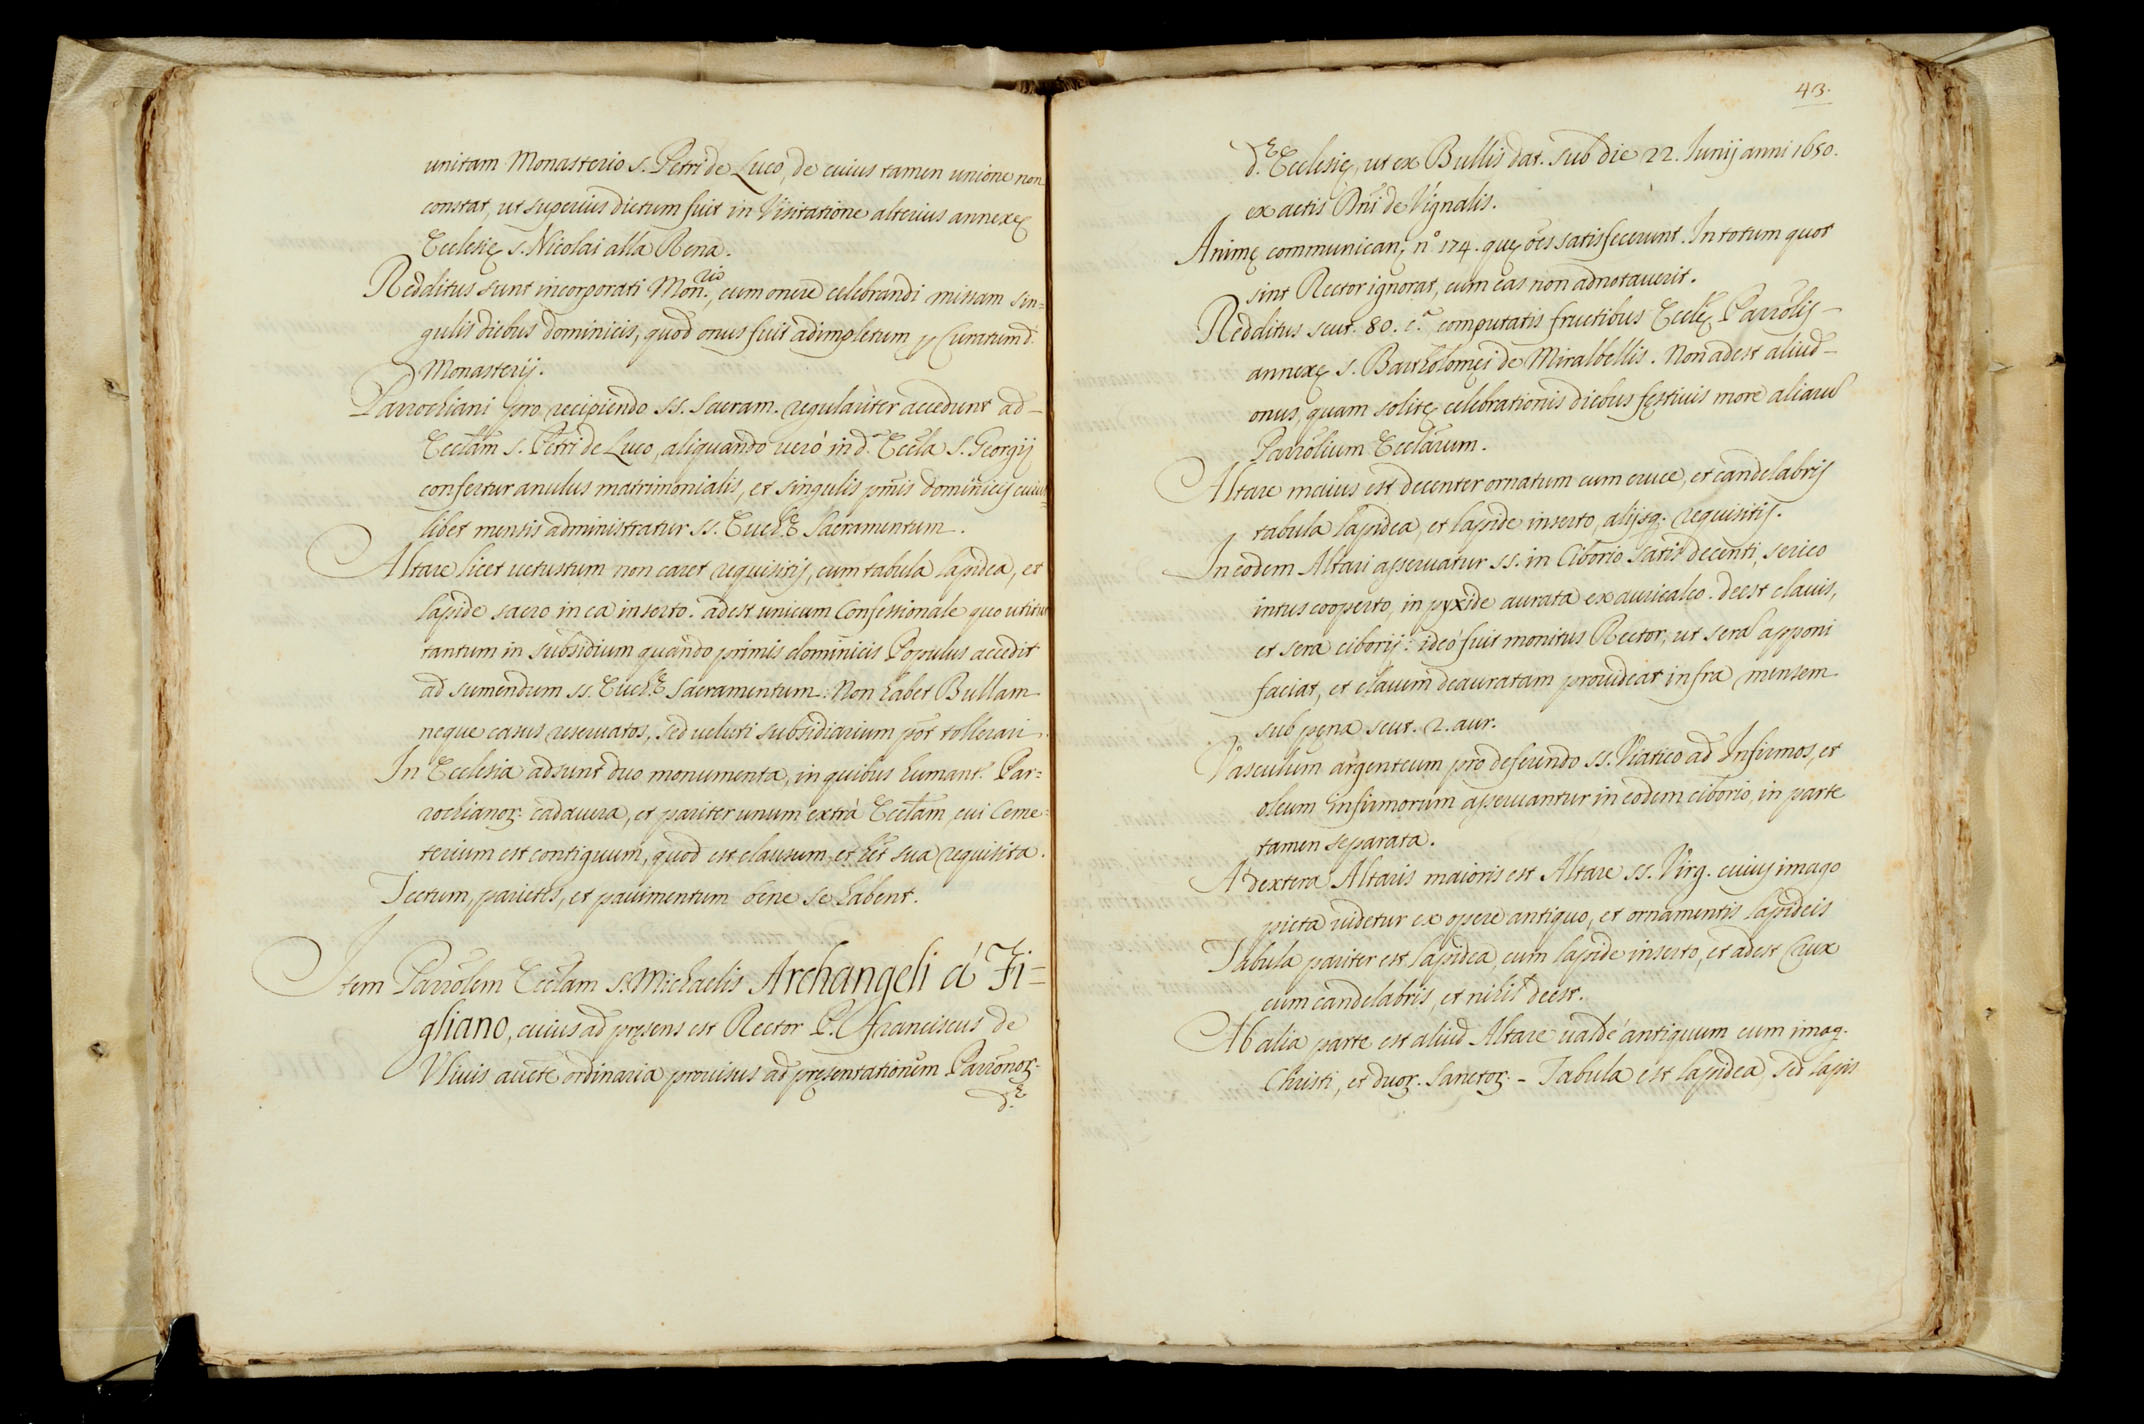 unitam Monasterio S. Petri de Luco, de cuius tamen unione non
constat, ut superius dictum fuit in Visitatione alterius annexę
Ecclesię S. Nicolai alla Rena.
Redditus sunt incorporati Mon.rio, cum onere celebrandi missam sin=
gulis diebus dominicis, quod onus fuit adimpletum p Curatum d.
Monasterij.
Parrochiani pro recipiendo SS. Sacram. regulariter accedunt ad
Eccłam S. Petri de Luco, aliquando verò in d.a Eccła S. Georgij
confertur anulus matrimonialis, et singulis pm̃is dominicis cuius
libet mensis administratur SS. Euch.ę Sacramentum.
Altare licet vetustum non caret requisitis, cum tabula lapidea, et
lapide sacro in ea inserto. adest unicum Confessionale quo utitur
tantum in subsidium quando primis dominicis Populus accedit
ad sumendum SS. Euch.ę Sacramentum. Non habet Bullam
neque casus reservatos, sed veluti subsidiarium põt tollerari.
In Ecclesia adsunt duo monumenta, in quibus humant.r Par=
rochianoꝝ cadavera, et pariter unum extrà Eccłam cui Ceme=
terium est contiguum, quod est clausum, et hẽt sua requisita.
Tectum, parietes, et pavimentum bene se habent.
Item Parrõlem Eccłam S. Michaelis Archangeli à Fi=
gliano, cuius ad pręsens est Rector P. franciscus de
Ulivis auc̃te ordinaria provisus ad pręsentationem Patronoꝝ
d.ę
43.
d.ę Ecclesię, ut ex Bullis dat. sub die 22. Iunij anni 1650.
ex actis Dñi de Vignalis.
Animę communican; n.o 174. quę oẽs satisfecerunt. In totum quot
sint Rector ignorat, cum eas non adnotaverit.
Redditus scut. 80. c.a computatis fructibus Eccłę Parrõlis
annexę S. Bartholomęi de Miralbellis. Non adest aliud
onus, quam solitę celebrationis diebus festivis more aliarũ
Parrõlium Eccłarum.
Altare maius est decenter ornatum cum cruce, et candelabris
tabula lapidea, et lapide inserto, alijsq; requisitis.
In eodem Altari asservatur SS. in Ciborio satis decenti, serico
intus cooperto, in pyxide aurata ex auricalco. deest clavis,
et sera ciborij: ideò fuit monitus Rector, ut serã apponi
faciat, et clavim deauratam provideat infra mensem
sub pęna scut. 2. aur.
Vasculum argenteum pro deferendo SS. Viatico ad Infirmos, et
oleum infirmorum asservantur in eodem ciborio, in parte
tamen separata.
A dextera Altaris maioris est Altare SS. Virg. cuius imago
picta videtur ex opere antiquo, et ornamentis lapideis
Tabula pariter est lapidea cum lapide inserto, et adest Crux
cum candelabris, et nihil deest.
Ab alia parte est aliud Altare valdè antiquum cum imag.
Christi, et duoꝝ Sanctoꝝ - Tabula est lapidea, sed lapis